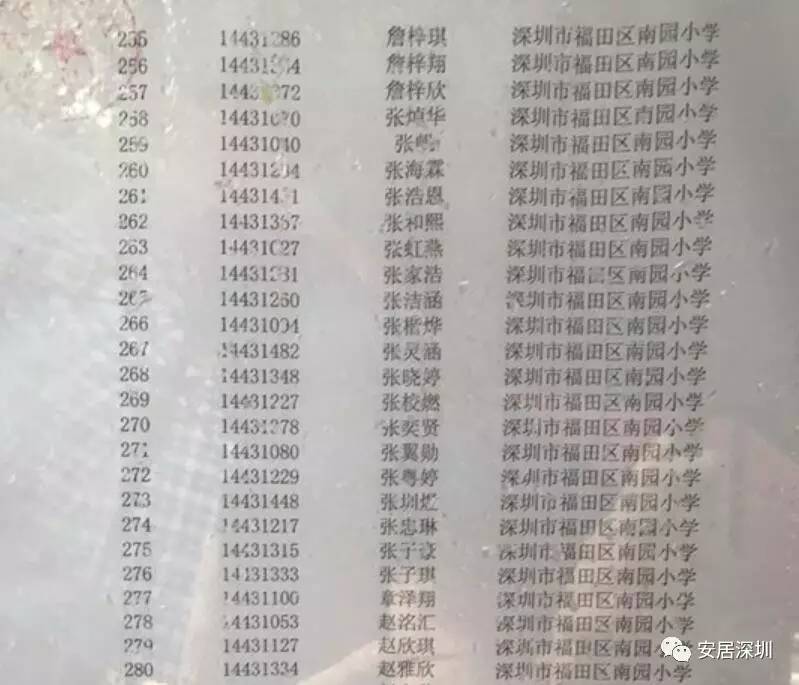 255 14431286 詹梓琪 深圳市福田区南园小学
256 詹梓翔 深圳市福田区南园小学
257 詹梓欣 深圳市福田区南园小学
258 深圳市福田区南园小学
259 14431040 深圳市福田区南园小学
260 张海霖 深圳市福田区南园小学
261 张浩恩 深圳市福田区南园小学
262 14431357 张和熙 深圳市福田区南园小学
263 14431027 张虹燕 深圳市福田区南园小学
264 张家浩 深圳市福田区南园小学
265 14431260 张洁涵 深圳市福田区南园小学
266 14431004 深圳市福田区南园小学
267 14431482 张灵涵 深圳市福田区南园小学
268 14431348 张晓婷 深圳市福田区南园小学
269 14431227 张校燃 深圳市福田区南园小学
270 14431278 张奕贤 深圳市福田区南园小学
271 14431080 张翼勋 深圳市福田区南园小学
272 14431229 张粤婷 深圳市福田区南园小学
273 14431448 张圳煜 深圳市福田区南园小学
274 14431217 张忠琳 深圳市福田区南园小学
275 14431315 张子豪 深圳市福田区南园小学
276 14431333 张子琪 深圳市福田区南园小学
277 14431100 章泽翔 深圳市福田区南园小学
278 14431053 赵洺汇 深圳市福田区南园小学
279 14431127 赵欣琪 深圳市福田区南园小学
280 14431334 赵雅欣 深圳市福田区南园小学
安居深圳